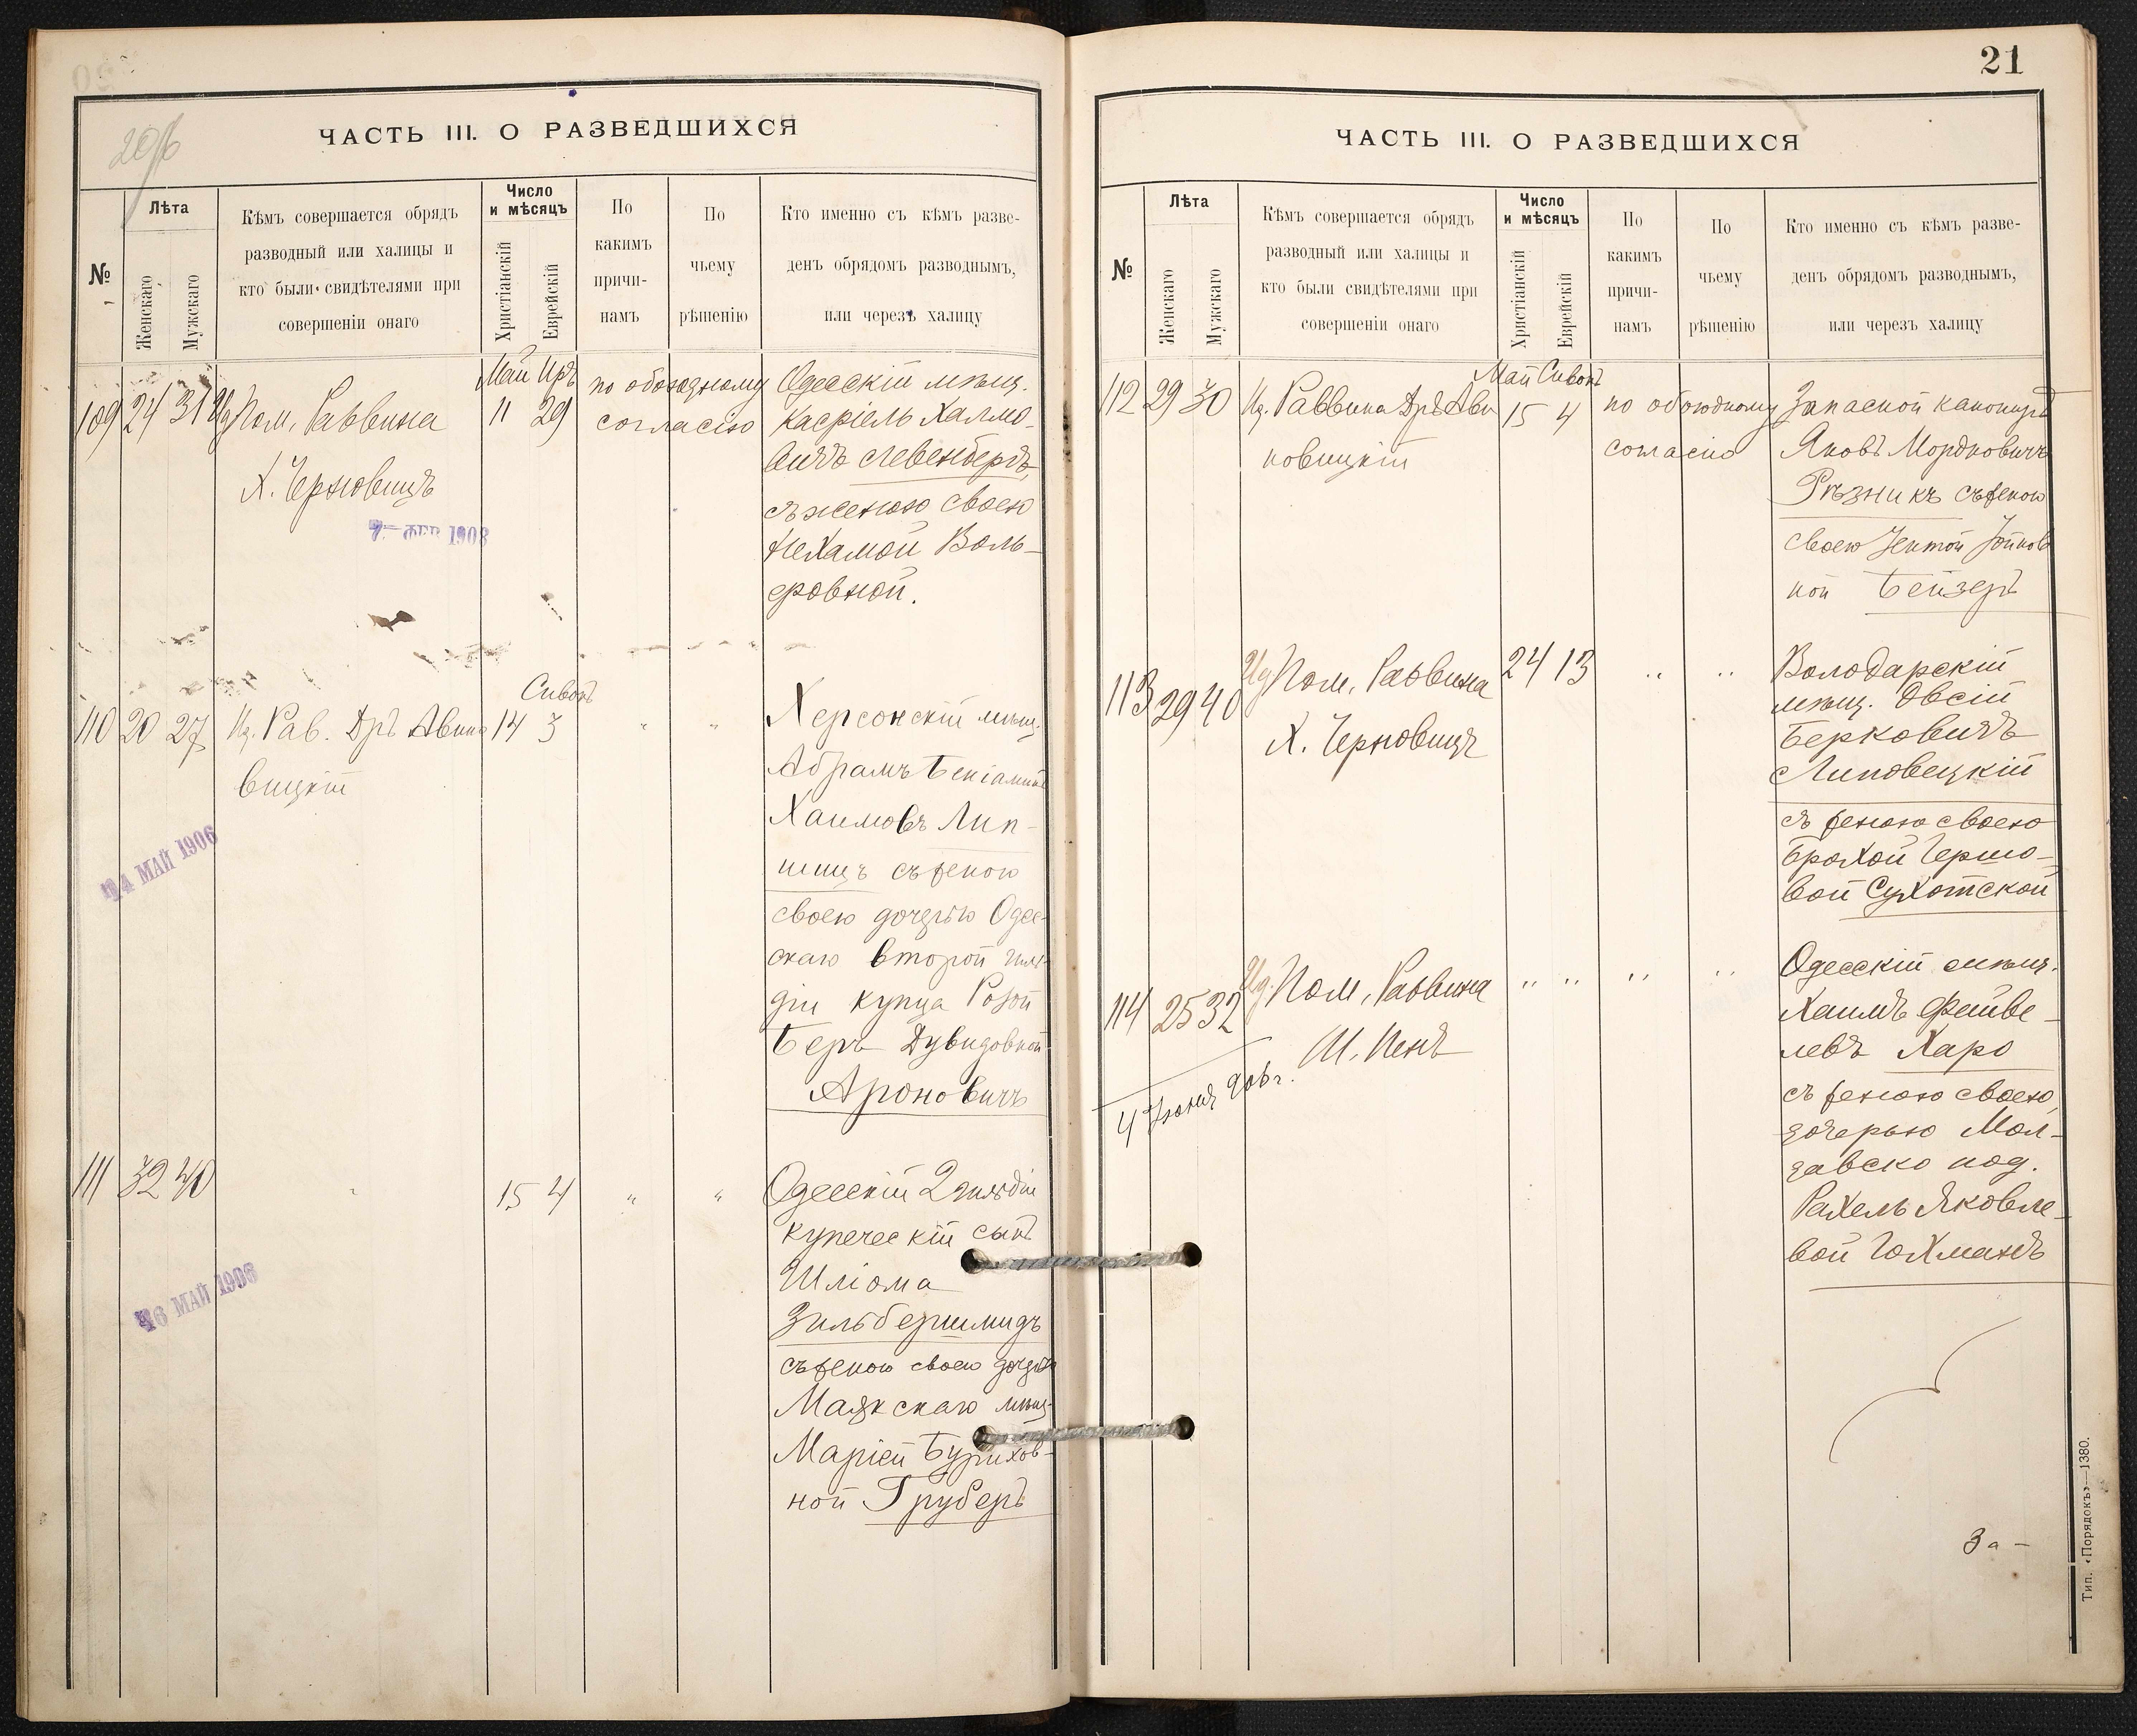 20/б
ЧАСТЬ III. О РАЗВЕДШИХСЯ
№
Лѣта
Женскаго
Мужскаго
Кѣмъ совершается обрядъ
разводный или халицы и
кто были свидѣтелями при
совершеніи онаго
Число
и мѣсяцъ
Христіанскій
Еврейскій
По
какимъ
причи-
намъ
По
чьему
рѣшенію
Кто именно съ кѣмъ разве-
денъ обрядомъ разводнымъ,
или черезъ халицу
Май Иръ
109 24 31 Пом. Раввина 11 29 по обоюдному Одесскій мѣщ.
Х. Черновицъ согласію Касріель Халмо-
вичъ Левенбергъ
съ женою своею
Нехамой Воль-
фовной.
7 – ФЕВ 1908
Сивонъ
110 20 27 Из. Рав. Дръ Авино 14 3 " " Херсонскій мѣщ.
вицкій Абрамъ Беніаминъ
Хаимовъ Лип-
шицъ съ женою
своею дочерью Одес-
скаго второй гиль-
діи купца Розой
Беръ Дувидовной
Ароновичъ
14 МАЙ 1906
111 32 40 " 15 4 " " Одесскій 2 гильдіи
купеческій сынъ
Шліома
Зильбершмидъ
съ женою своею дочерью
Маякскаго мѣщ.
Маріей Бурихов-
ной Груберъ
16 МАЙ 1906
21
ЧАСТЬ III. О РАЗВЕДШИХСЯ
№
Лѣта
Женскаго
Мужскаго
Кѣмъ совершается обрядъ
разводный или халицы и
кто были свидѣтелями при
совершеніи онаго
Число
и мѣсяцъ
Христіанскій
Еврейскій
По
какимъ
причи-
намъ
По
чьему
рѣшенію
Кто именно съ кѣмъ разве-
денъ обрядомъ разводнымъ,
или черезъ халицу
Май Сивонъ
112 29 30 Из. Раввина Дръ Ави 15 4 по обоюдному Запасной канониръ
новицкій согласію Яковъ Мордковичъ
Рѣзникъ съ женою
своею Зентой
ной Бейзеръ
113 29 40 Пом. Раввина 24 13 " " Володарскій
Х. Черновицъ мѣщ. Овсій
Берковичъ
Липовецкій
съ женою своею
Брохой Гершо-
вой Сухотской
114 25 32 Пом. Раввина " " " " Одесскій мѣщ.
Ш. Пенъ Хаимъ Файве-
левъ Харо
съ женою своею,
дочерью Мол-
давско под.
Рахель Яковле-
вой Гохманъ
4 Іюня 906 г.
За –
Тип. «Порядокъ»—1380.